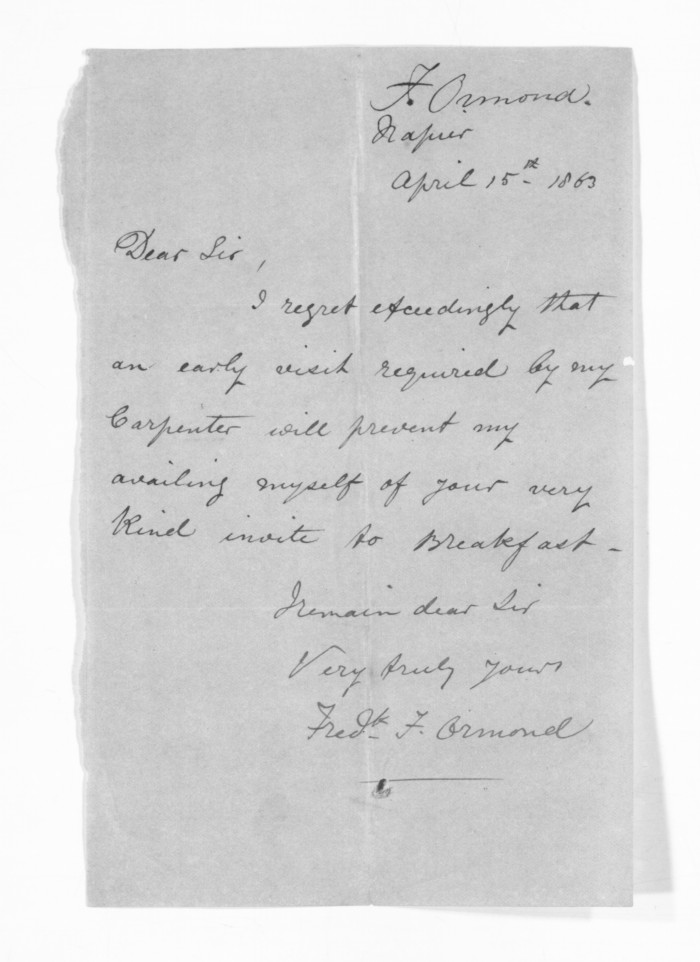 F. Ormond.
Napier
April 15th 1863
Dear Sir,
I regret exceedingly that
an early visit required by my
Carpenter will prevent my
availing myself of your very
kind invite to Breakfast -
I remain dear Sir
Very truly yours
Fredk. F. Ormond